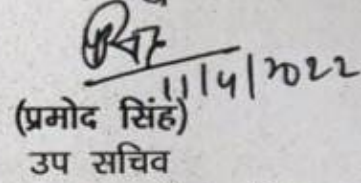 11/4/2022
(प्रमोद सिंह)
उप सचिव